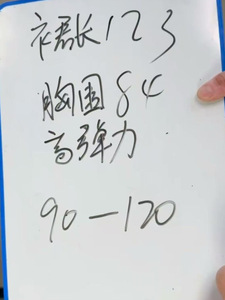 裙长123
胸围84
高弹力
90—120